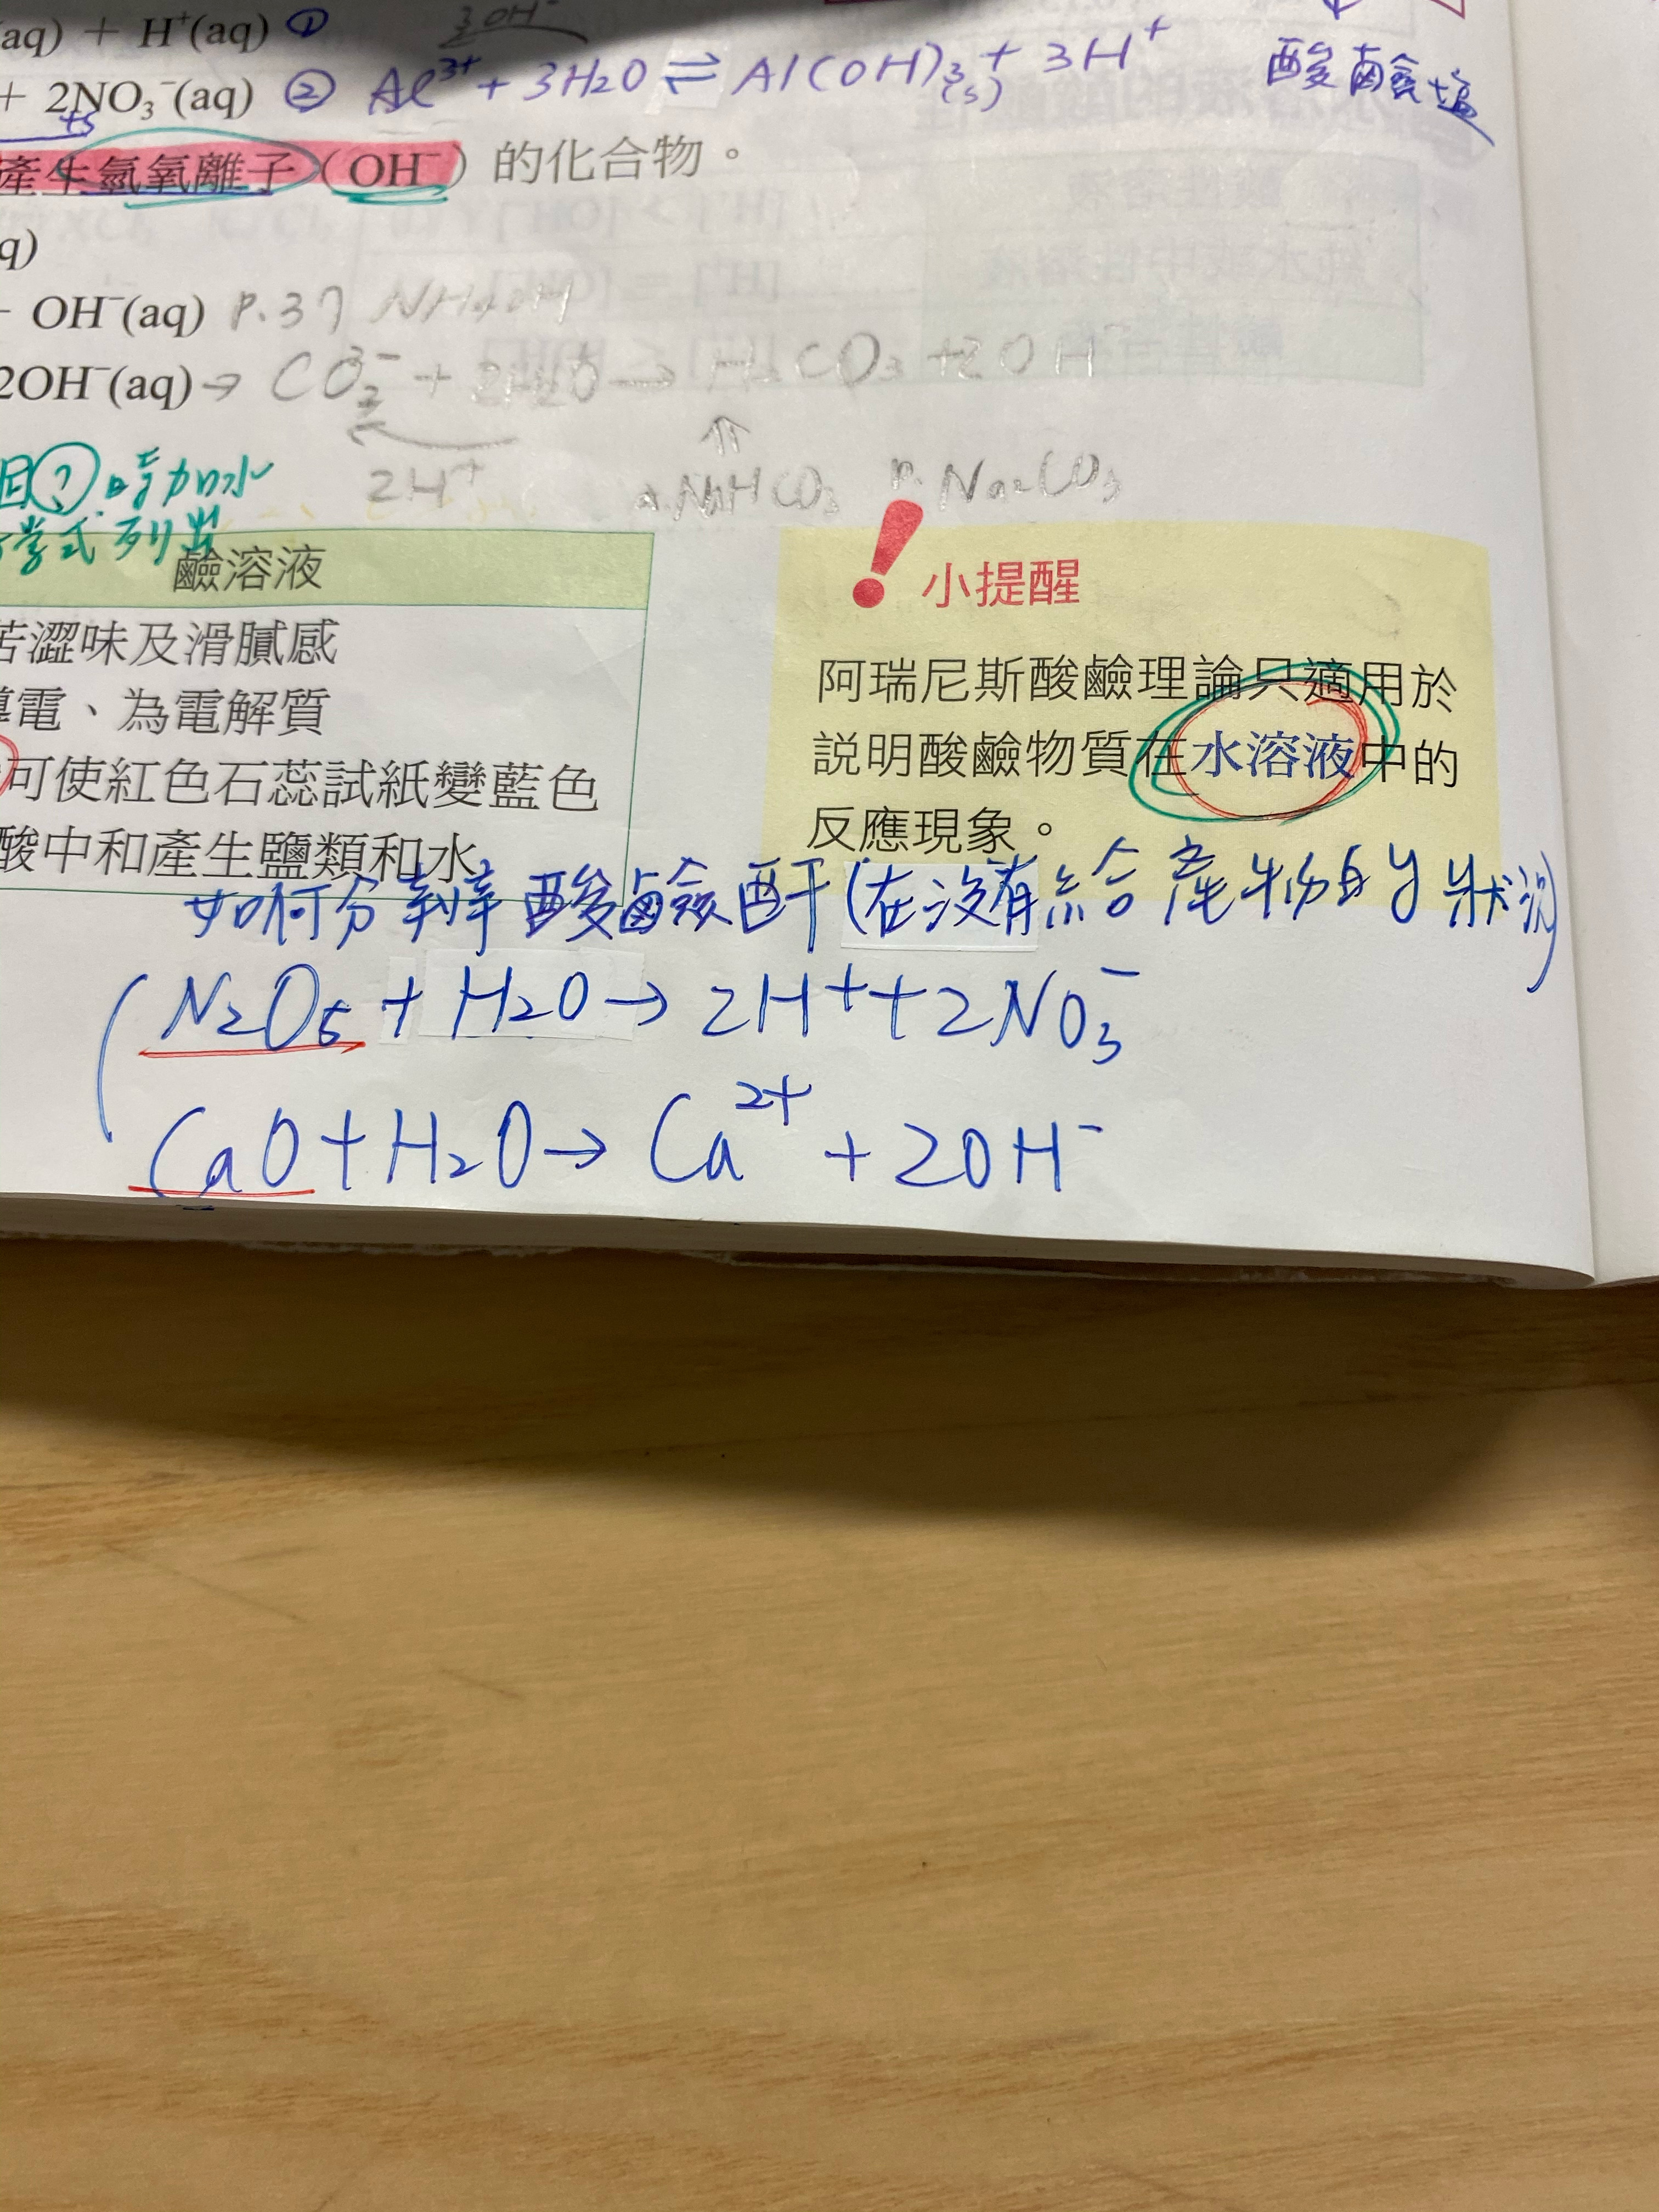 3OH⁻
(aq) + H⁺(aq) ①
+ 2NO₃⁻(aq) ② Al³⁺ + 3H₂O ⇌ Al(OH)₃(s) + 3H⁺
酸鹼塩
+5
產生氫氧離子（OH⁻）的化合物。
q)
OH⁻(aq) P.37 NH₄OH
2OH⁻(aq) → CO₃²⁻ + 2H₂O → H₂CO₃ + 2OH⁻
2H⁺
⇑
NaHCO₃ Na₂CO₃
? 時加水
學式列出
鹼溶液
苦澀味及滑膩感
導電、為電解質
可使紅色石蕊試紙變藍色
酸中和產生鹽類和水
! 小提醒
阿瑞尼斯酸鹼理論只適用於
說明酸鹼物質在水溶液中的
反應現象。
如何分辨酸鹼酐(在沒有給產物的狀況)
N₂O₅ + H₂O → 2H⁺ + 2NO₃⁻
CaO + H₂O → Ca²⁺ + 2OH⁻